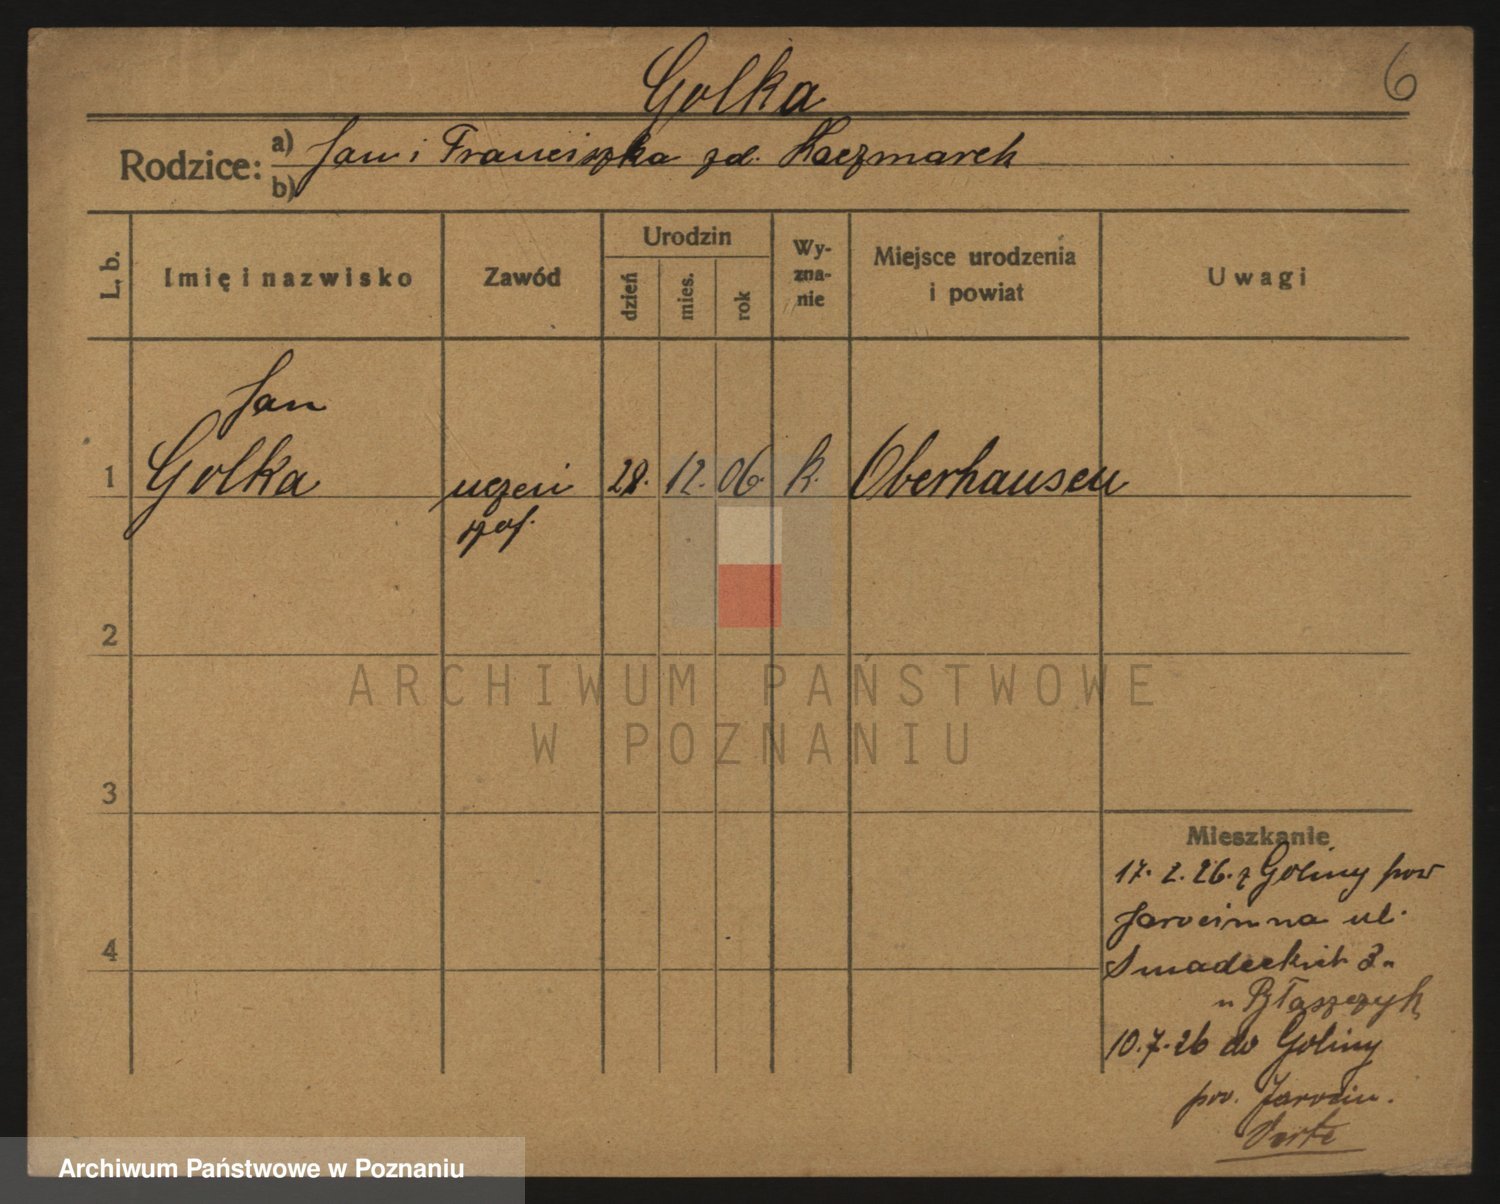 Golka
6
Rodzice:
a) Jan i Franciszka zd. Kaczmarek
b)
L. b.
Imię i nazwisko
Zawód
Urodzin
dzień
mies.
rok
Wy-
zna-
nie
Miejsce urodzenia
i powiat
Uwagi
Jan
1 Golka uczeń 28. 12. 06. k. Oberhausen
2
3
4
Mieszkanie
17. 2. 26. z Goliny pow
Jarocin na ul.
Śniadeckich
u
10.7.26 do Goliny
pow. Jarocin.
Verte
ARCHIWUM PAŃSTWOWE
W POZNANIU
Archiwum Państwowe w Poznaniu